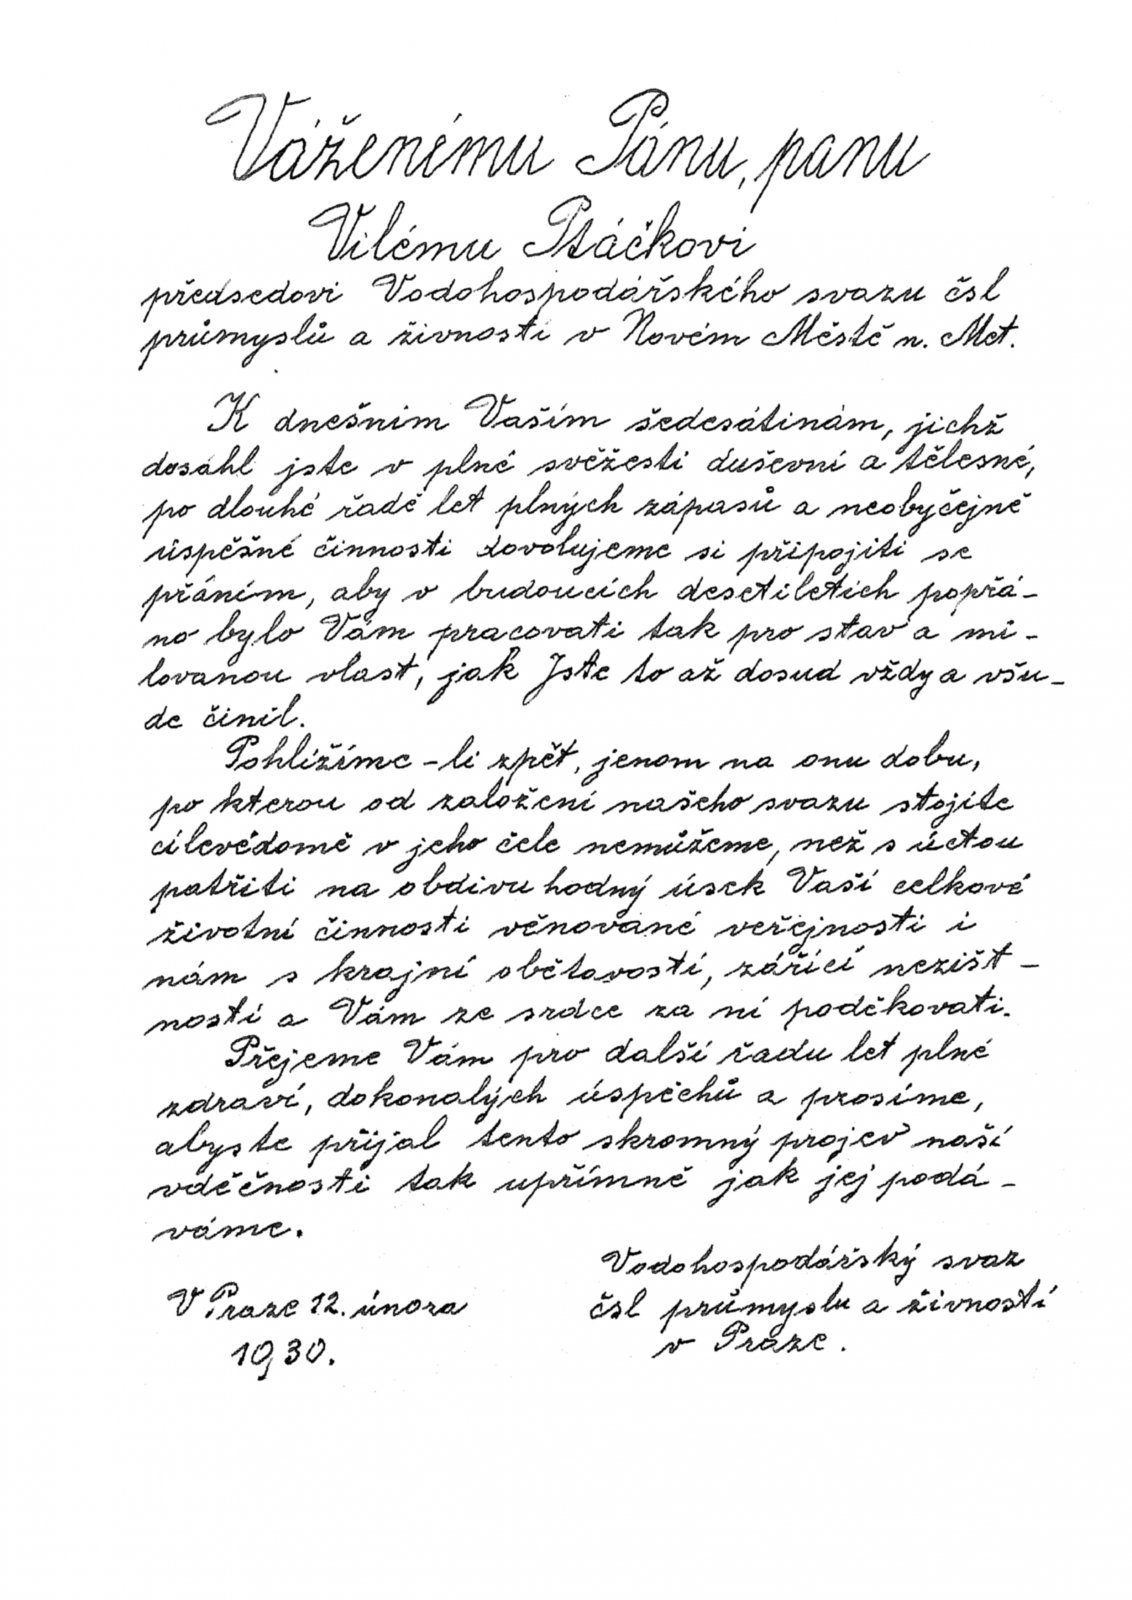 Váženému Pánu, panu
Vilému Ptáčkovi
předsedovi Vodohospodářského svazu čsl
průmyslů a živnosti v Novém Městě n. Met.
K dnešním Vaším šedesátinám, jichž
dosáhl jste v plné svěžesti duševní a tělesné,
po dlouhé řadě let plných zápasů a neobyčejně
úspěšné činnosti dovolujeme si připojiti se
přáním, aby v budoucích desetiletích popřá-
no bylo Vám pracovati tak pro stav a mi-
lovanou vlast, jak Jste to až dosud vždy a všu-
de činil.
Pohlížíme-li zpět, jenom na onu dobu,
po kterou od založení našeho svazu stojíte
cílevědomě v jeho čele nemůžeme, než s úctou
patřiti na obdivu hodný úsek Vaší celkové
životní činnosti věnované veřejnosti i
nám s krajní obětavostí, zářící nezišt-
ností a Vám ze srdce za ní poděkovati.
Přejeme Vám pro další řadu let plné
zdraví, dokonalých úspěchů a prosíme,
abyste přijal tento skromný projev naší
vděčnosti tak upřímně jak jej podá-
váme.
Vodohospodářský svaz
čsl průmyslu a živností
v Praze.
V Praze 12. února
1930.